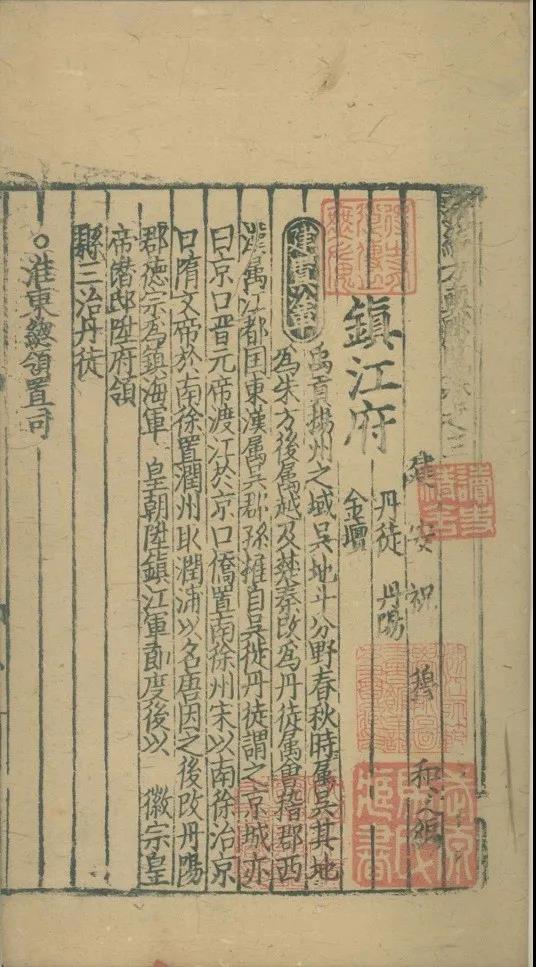 建安祝 穆 和父 編
鎮江府
丹徒 丹陽
金壇
建置沿革 禹貢揚州之域吳地斗分野春秋時属吳其地
為朱方後属越及楚秦改為丹徒属會指郡西
漢属江都国東漢属吳郡孫推自吳徙丹徒謂之京城亦
曰京口晋元帝渡江於京口僑置南徐州宋以南徐治京
口隋文帝於南徐置潤州取潤浦以名唐因之後改丹陽
郡德宗為鎮海軍 皇朝陞鎮江軍節度後以 徽宗皇
帝潛邸陞府領
縣三治丹徒
○淮東總領置司